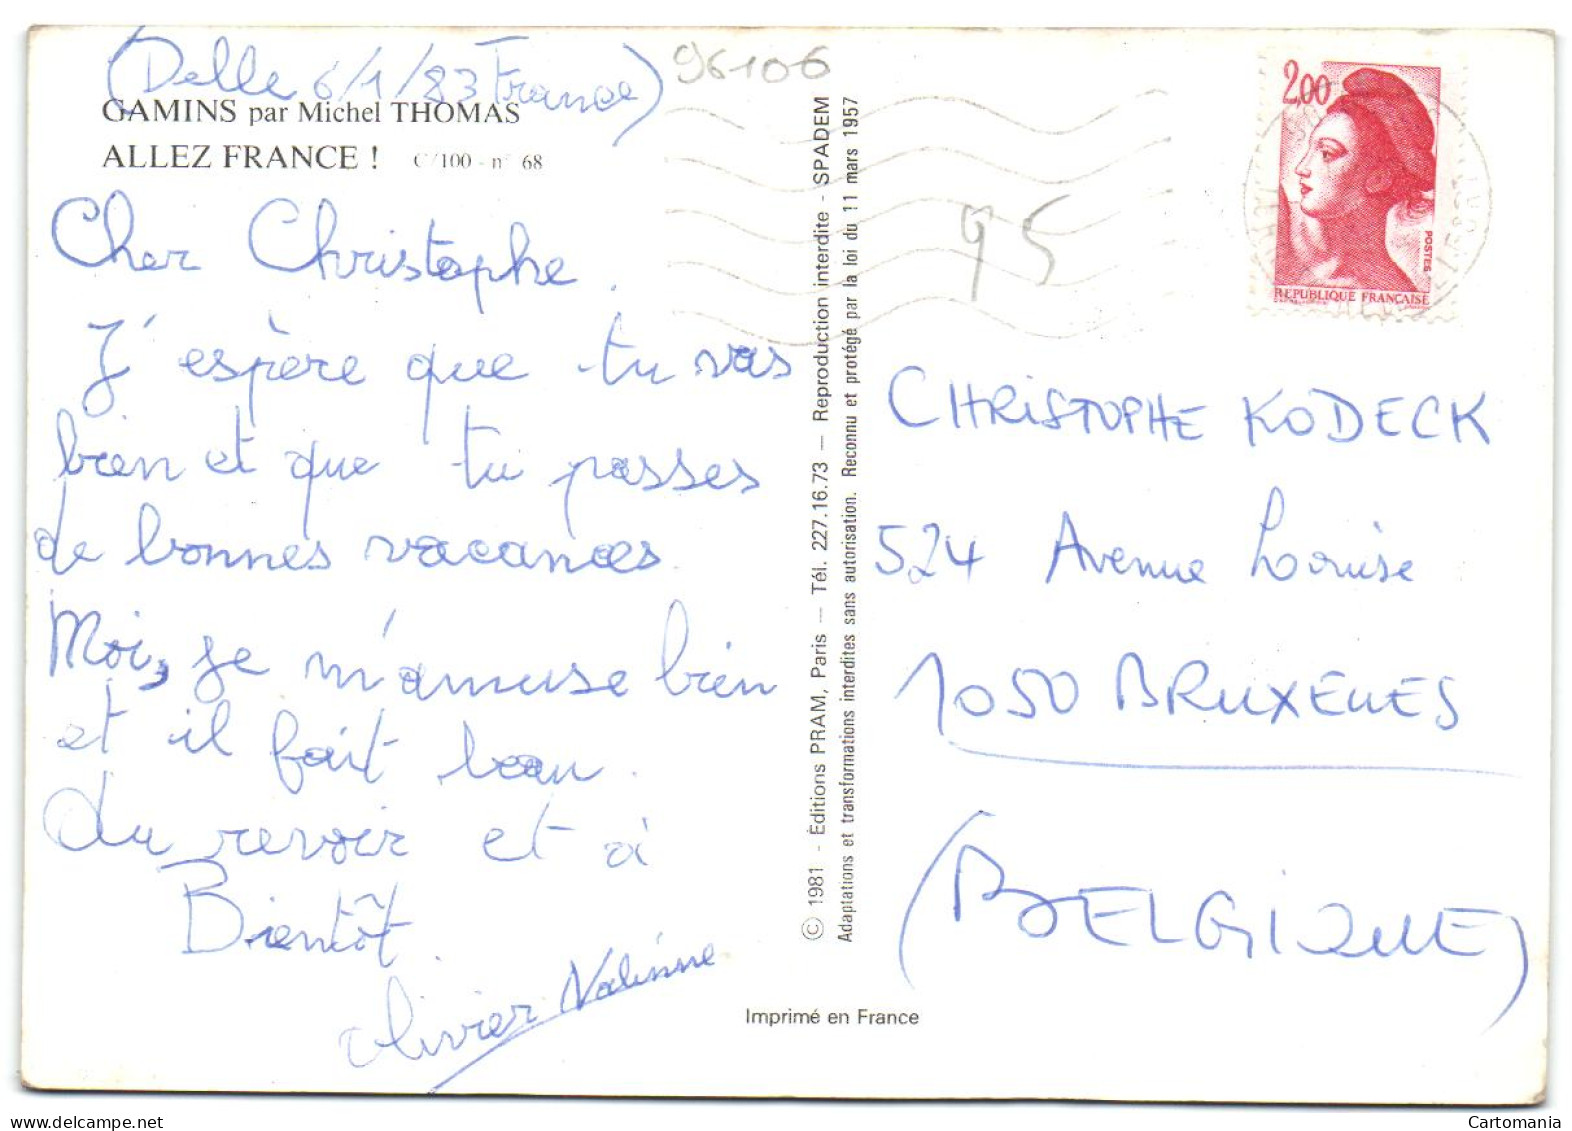 (Delle 6/1/83 France)
96106
GAMINS par Michel THOMAS
ALLEZ FRANCE ! C/100 - n° 68
Cher Christophe.
J'espère que tu vas
bien et que tu passes
de bonnes vacances.
Moi, je m'amuse bien
et il fait beau.
Au revoir et à
Bientôt.
Olivier
© 1981 - Éditions PRAM, Paris — Tél. 227.16.73 — Reproduction interdite - SPADEM
Adaptations et transformations interdites sans autorisation. Reconnu et protégé par la loi du 11 mars 1957
Imprimé en France
95
2,00
POSTES
REPUBLIQUE FRANÇAISE
CHRISTOPHE KODECK
524 Avenue Louise
1050 BRUXELLES
(BELGIQUE)
Cartomania